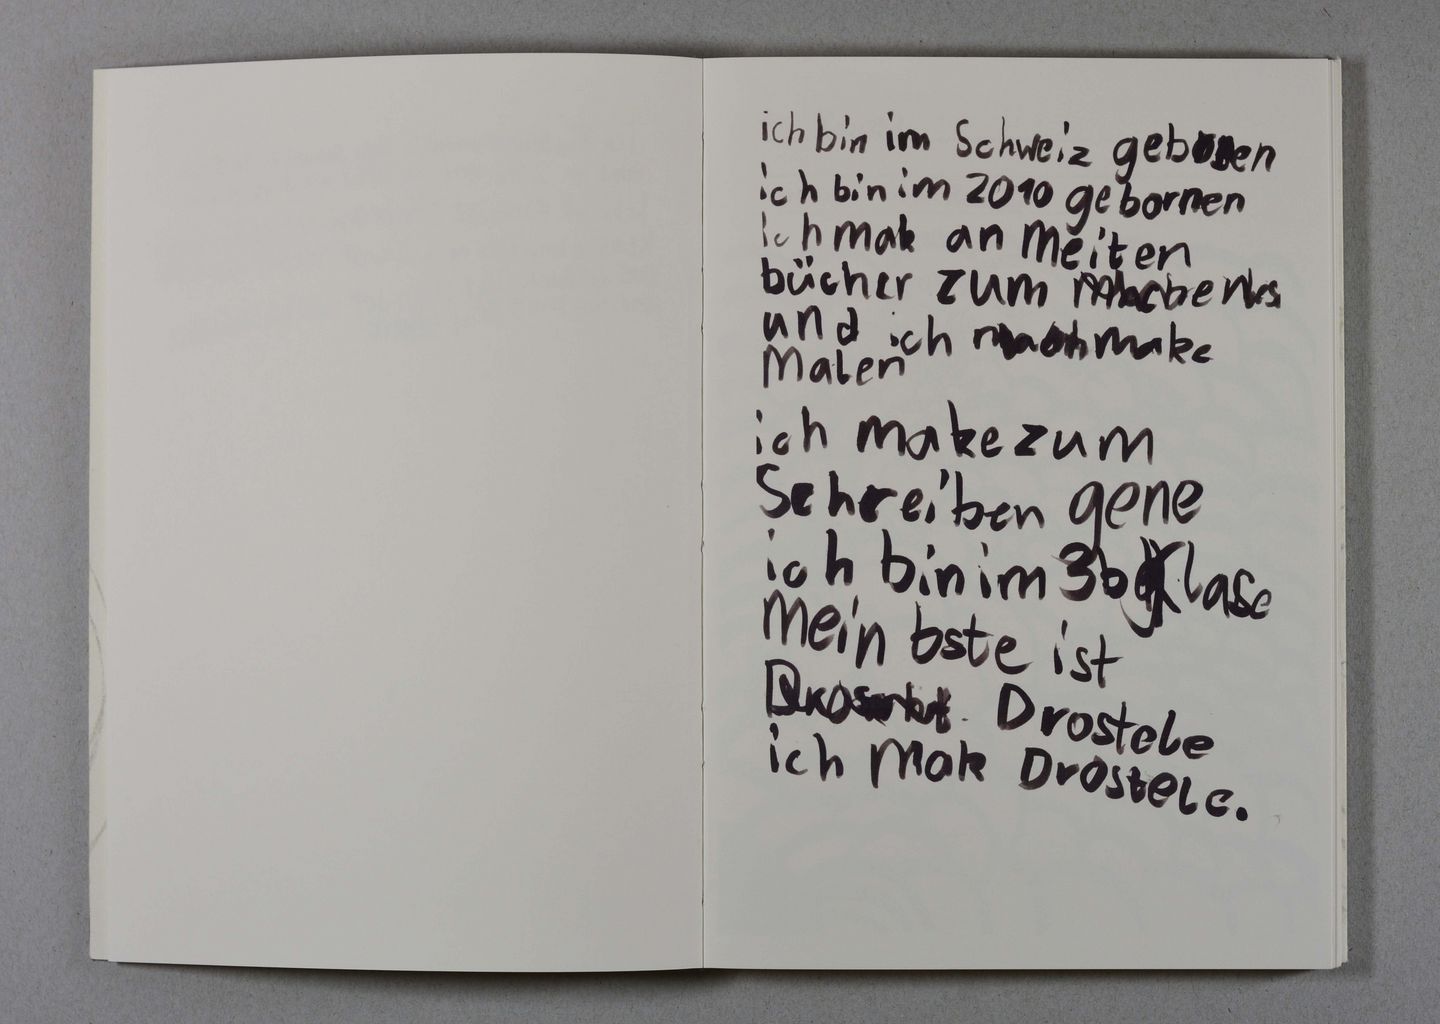 ich bin im Schweiz geboren
ich bin im 2010 gebornen
ich mak an Meiten
bücher zum
und ich make
Malen
ich make zum
Schreiben gene
ich bin im 3b Klase
Mein bste ist
Drostele
ich Mak Drostele.